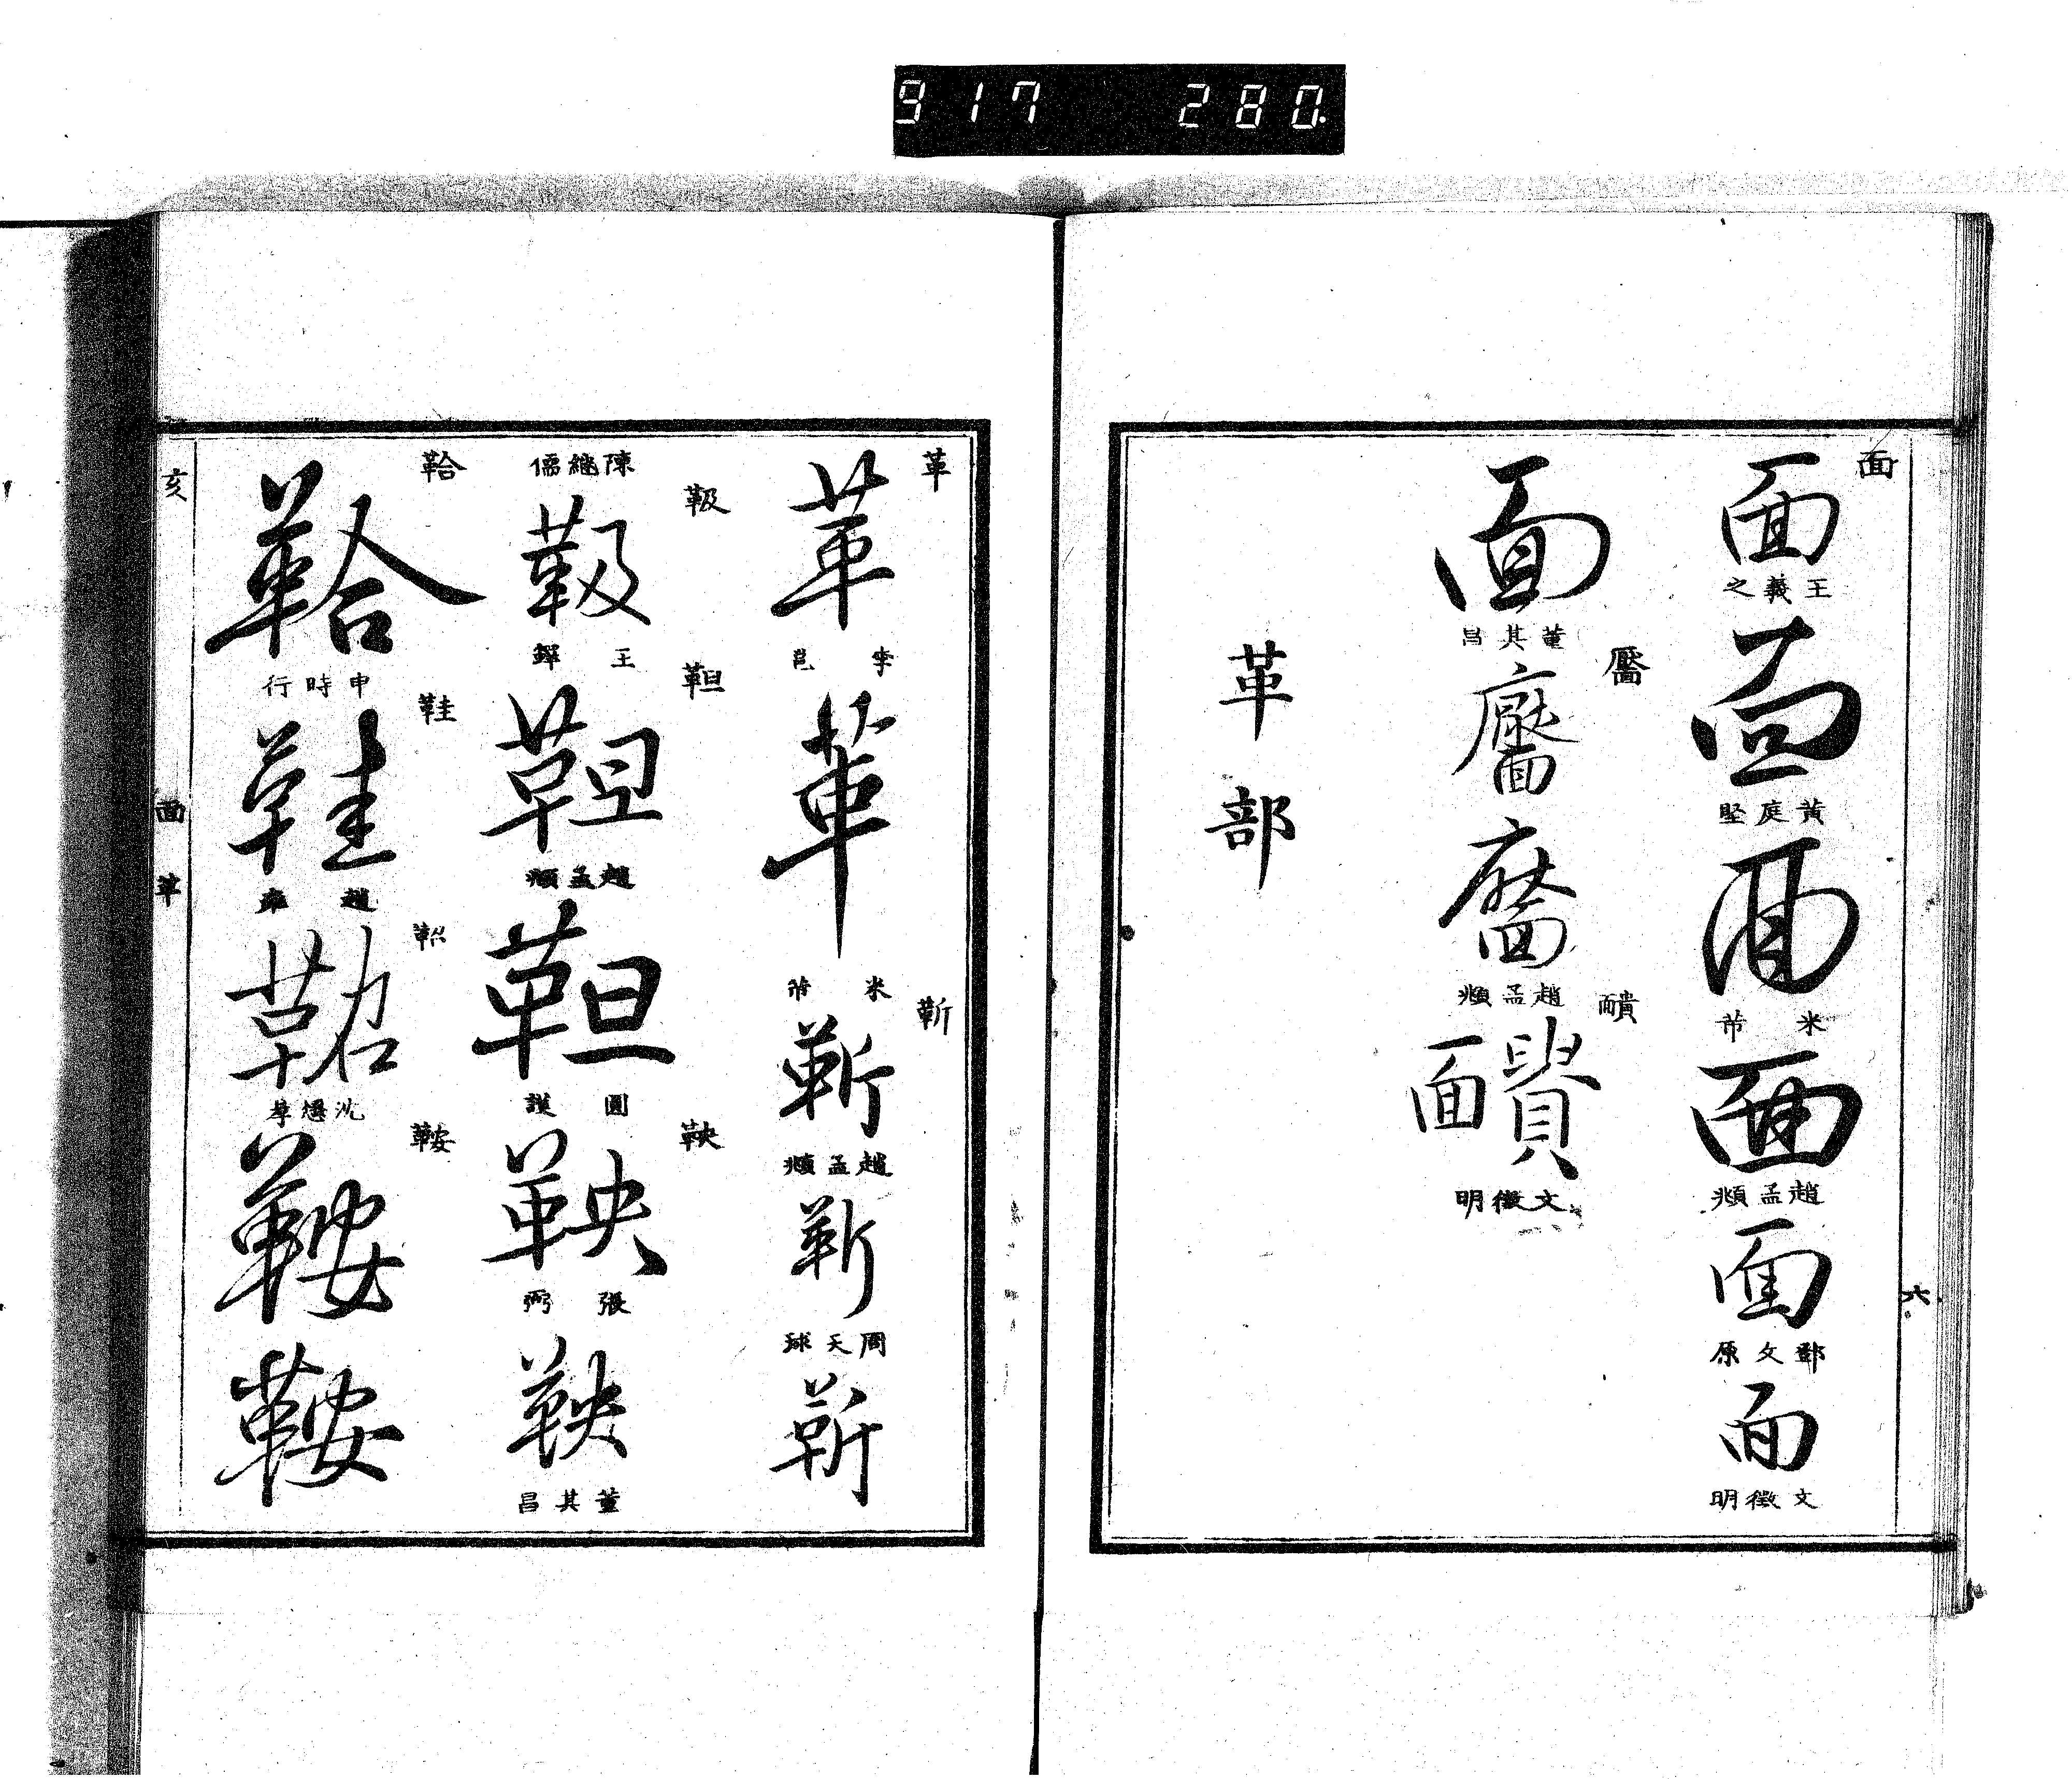 917 280.
面
面
王羲之
面
黃庭堅
面
米芾
面
趙孟頫
面
鄧文原
面
文徵明
六
面
董其昌
靨
靨
靨
趙孟頫
靧
靧
文徵明
革部
革
革
李邕
革
米芾
靳
靳
趙孟頫
靳
周天球
靳
陳繼儒
靸
靸
王鐸
靼
靼
趙孟頫
靼
圓護
鞅
鞅
張弼
鞅
董其昌
鞈
鞈
申時行
鞋
鞋
趙雍
鞀
鞀
沈懋孝
鞍
鞍
鞍
亥
面
革